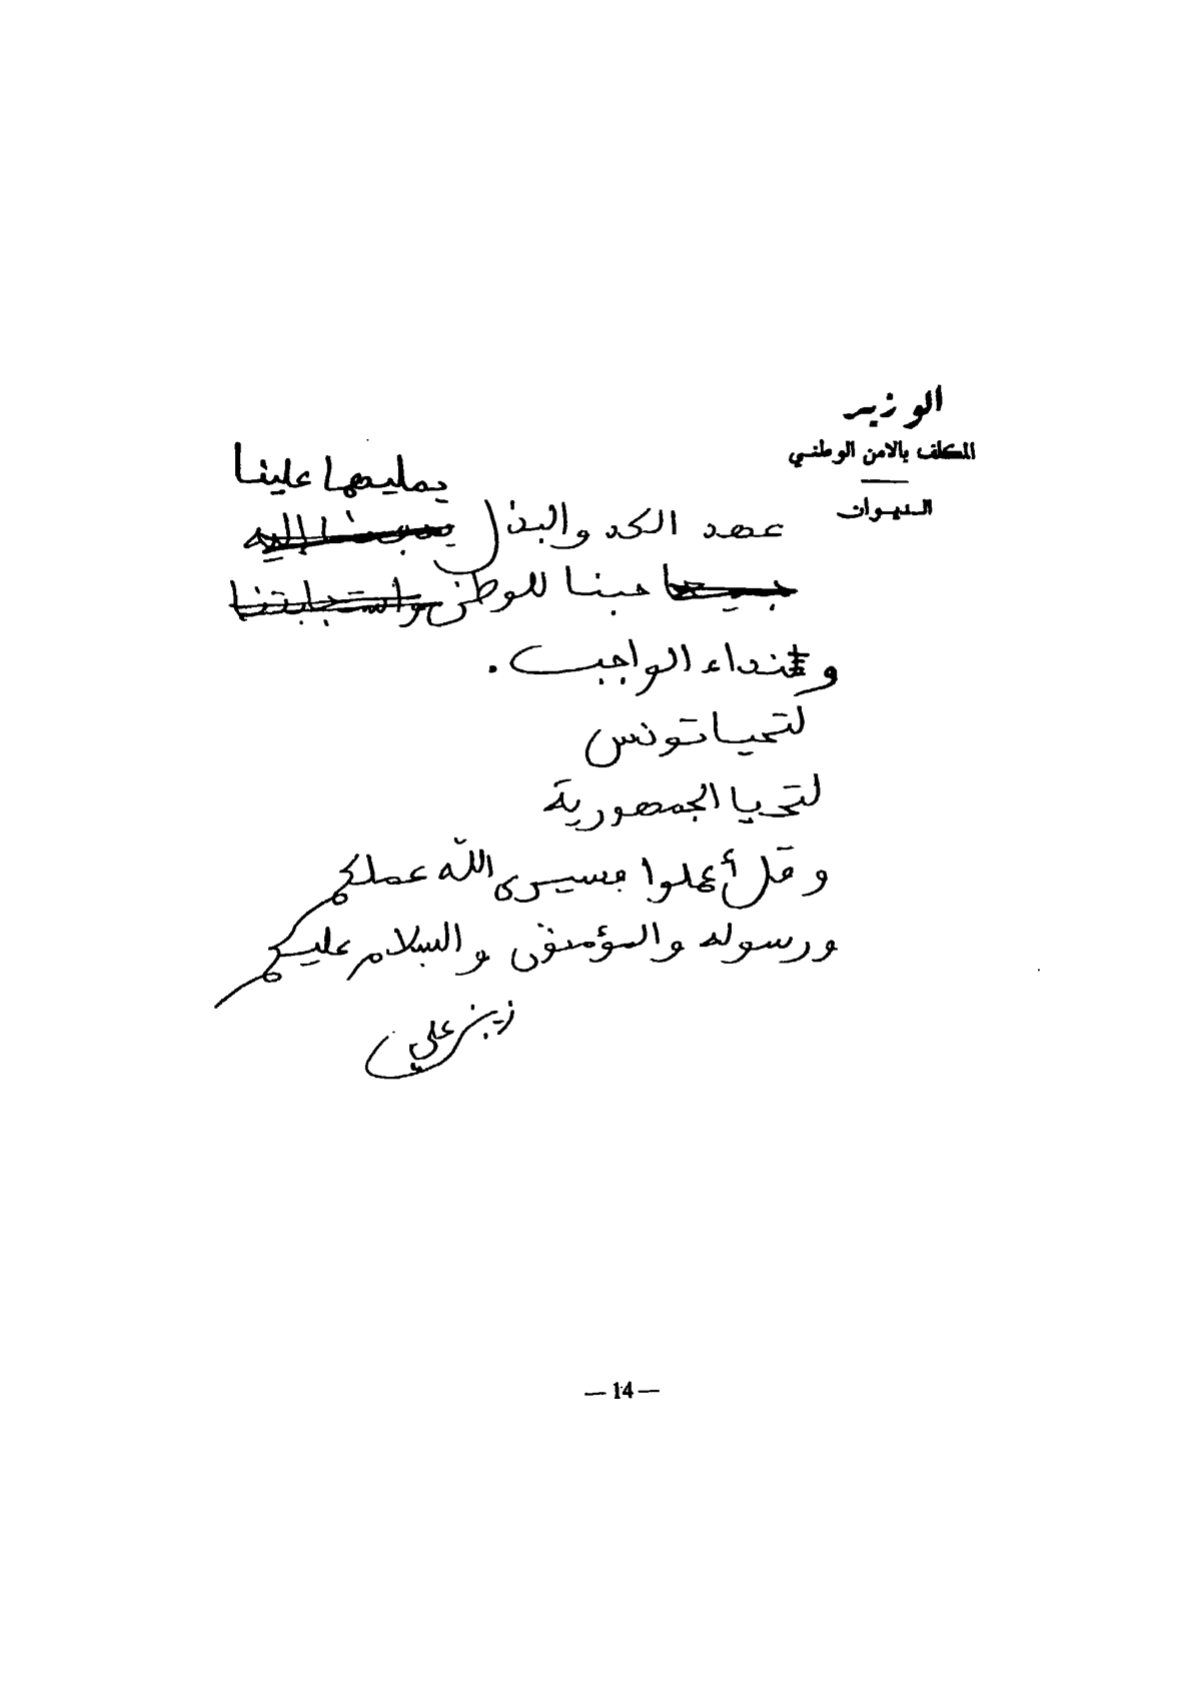 الوزير
المكلف بالامن الوطني
الديوان
يمليها علينا
عهد الكد والبذل
حبنا للوطن واستجابتنا
ونداء الواجب .
لتحيا تونس
لتحيا الجمهورية
و قل أعملوا فسيرى الله عملكم
ورسوله والمؤمنون والسلام عليكم
زين علي
— 14 —